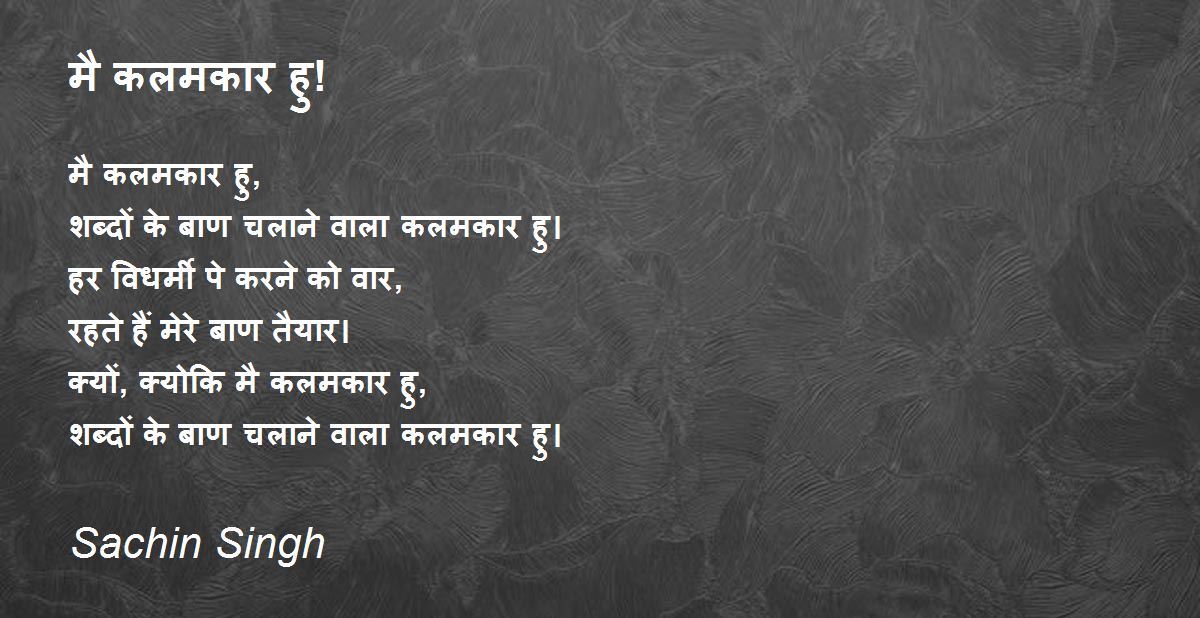 मै कलमकार हु!
मै कलमकार हु,
शब्दों के बाण चलाने वाला कलमकार हु।
हर विधर्मी पे करने को वार,
रहते हैं मेरे बाण तैयार।
क्यों, क्योकि मै कलमकार हु,
शब्दों के बाण चलाने वाला कलमकार हु।
Sachin Singh